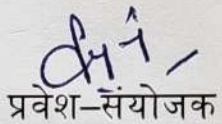 प्रवेश–संयोजक